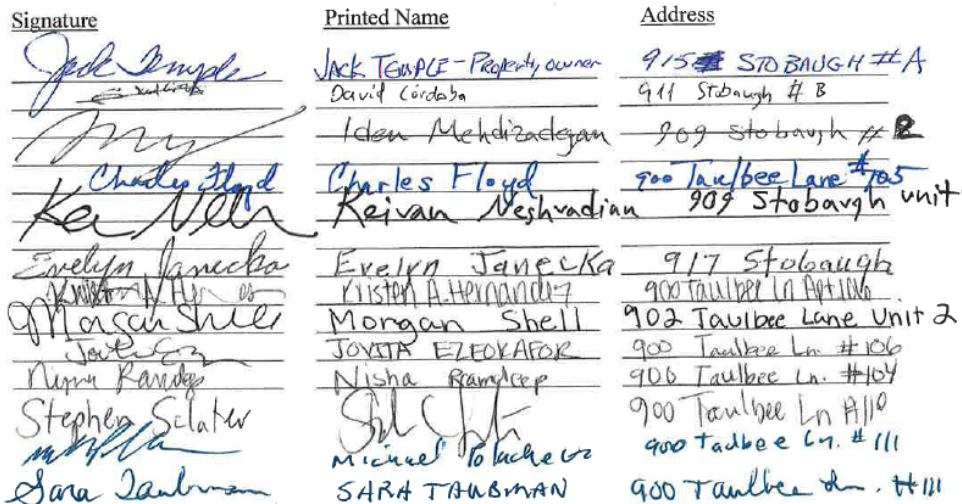 Signature Printed Name Address
Jack Temple JACK TEMPLE - Property owner 915 STOBAUGH #A
David Córdoba 911 Stobaugh # B
Iden Mehdizadegan 909 Stobaugh #
Charles Floyd Charles Floyd 900 Taulbee Lane #105
Keivan Neshvadian 909 Stobaugh unit
Evelyn Janecka Evelyn Janecka 917 Stobaugh
Kristen A. Hernandez 900 Taulbee Ln Apt
Morgan Shell Morgan Shell 902 Taulbee Lane Unit 2
JOVITA EZEOKAFOR 900 Taulbee Ln. #106
Nisha 900 Taulbee Ln. #104
Stephen Sclater 900 Taulbee Ln #110
Michael 900 Taulbee Ln. #111
Sara Taubman SARA TAUBMAN 900 Taulbee Ln. #111